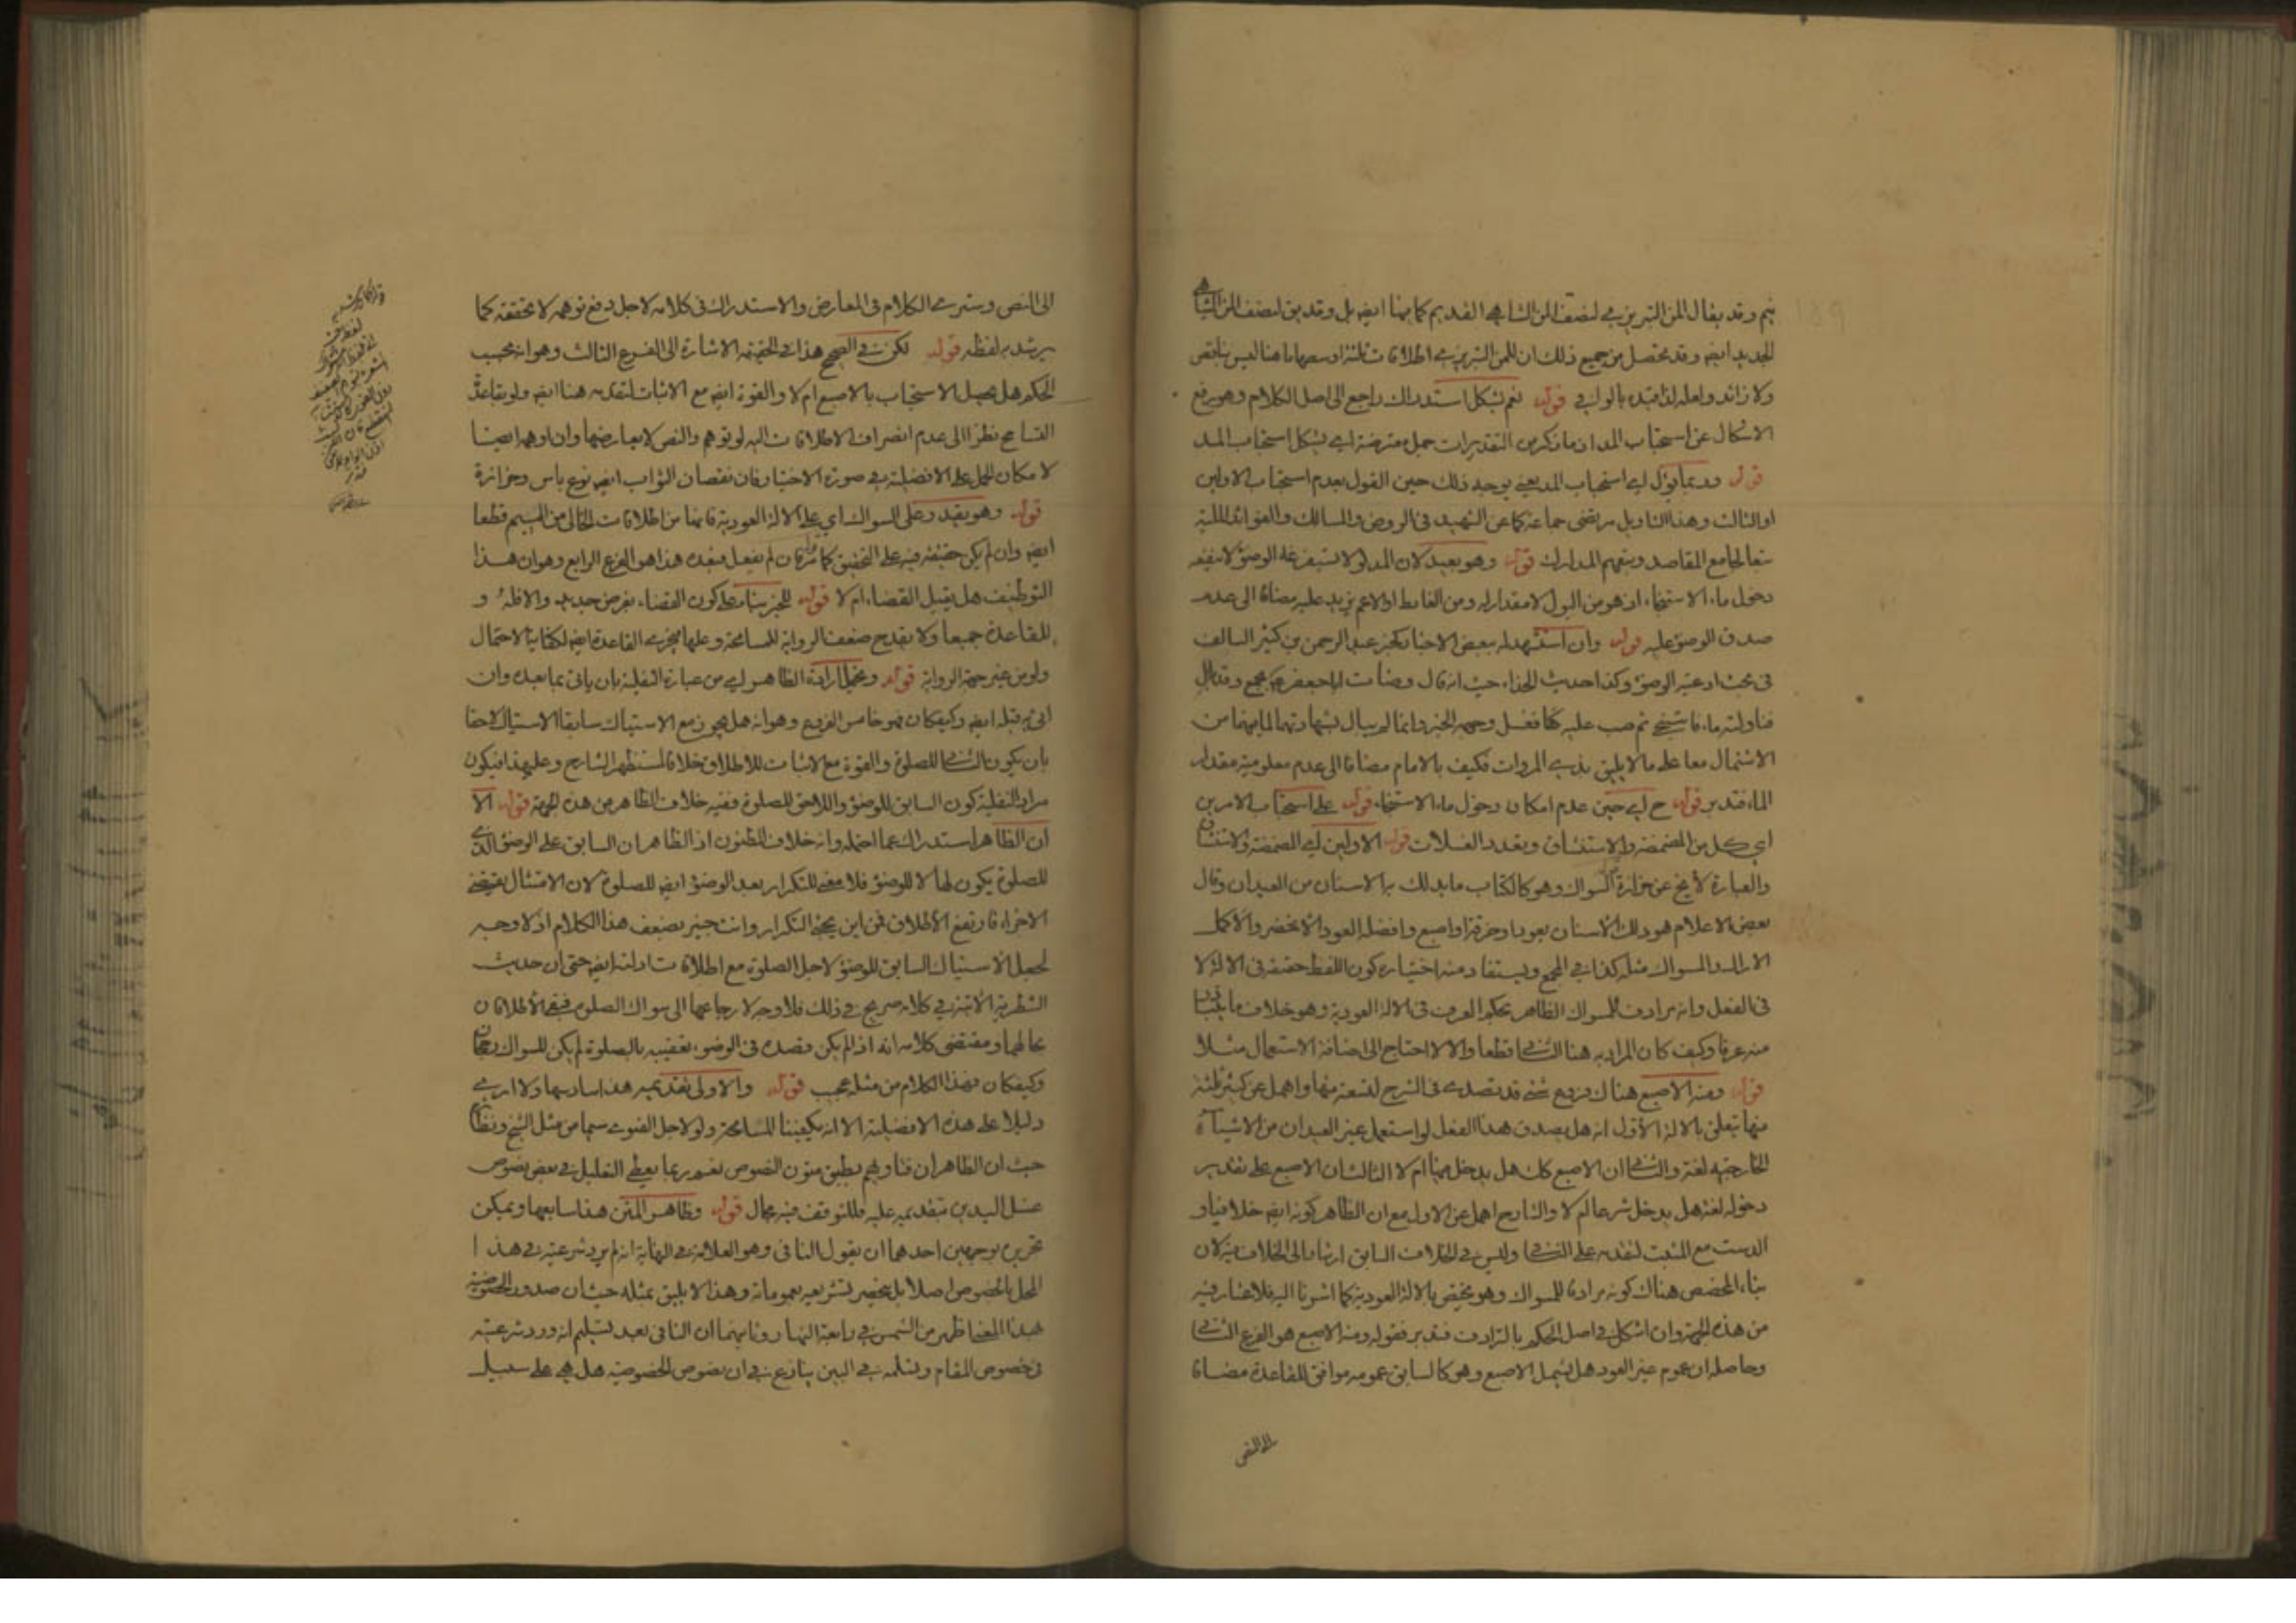 وقد يقال المن التبريزي لضعف المن الشاهي القديم كما بهما ايضا بل وقد يق لضعف المن الشاهي
الجديد ايضا وقد تحصل من جميع ذلك ان للمن التبريزي اطلاقات ثلثة اوسطها ما هنا ليس بناقص
ولا زائد ولعله لذا قيده بالوافي قوله نعم يشكل استدراك راجع الى اصل الكلام وهو رفع
الاشكال عن استحباب المد اذ ما ذكر من التقديرات جمل معترضة اي يشكل استحباب المد
قوله وربما يؤل اي استحباب المد يعني يوجد ذلك حين القول بعدم استحباب الاولين
او الثالث وهذا التاويل مرتضى جماعة كما عن الشهيد في الروض والمسالك والفوائد الملية
تبعا لجامع المقاصد وبتبعهم المدارك قوله وهو بعيد لان المد لا يستفرغه الوضوء لا ينفعه
دخول ماء الاستنجاء اذ هو من البول لا مقدار له ومن الغائط او الاعم يزيد عليه مضافا الى عدم
صدق الوضوء عليه قوله وان استشهد له ببعض الاخبار كخبر عبد الرحمن بن كثير السالف
في بحث ادعية الوضوء وكذا حديث الحذاء حيث انه قال وضأت ابا جعفر ع بجمع وقد بال
فناولته ماء فاستنجى ثم صب عليه كفا فغسل وجهه الخبر وانما لم يبال بشهادتهما لما بهما من
الاشتمال معا على ما لا يليق بذوي المروات فكيف بالامام مضافا الى عدم معلومية مقدار
الماء فتدبر قوله ح اي حين عدم امكان دخول ماء الاستنجاء قوله على استحباب الامرين
اي كل من المضمضة والاستنشاق وتعدد الغسلات قوله الاولين اي المضمضة والاستنشاق
والعبارة لا يخ عن حزازة قوله السواك وهو ككتاب ما يدلك به الاسنان من العيدان وقال
بعض الاعلام هو دلك الاسنان بعود او خرقة او اصبع وافضله العود الاخضر والاكمل
الاراك والمسواك مثله كذا في المجمع ويستفاد منه اختياره كون اللفظ حقيقة في الالة لا
في الفعل وانه مرادف للمسواك الظاهر بحكم العرف في الالة العودية وهو خلاف ما يتبادر
منه عرفا وكيف كان المراد به هنا الثاني قطعا والا لاحتاج الى اضافة الاستعمال مثلا
قوله ومنه الاصبع هناك فروع شتى قد تصدى في الشرح لتسعة منها واهمل عن كثير ثلثة
منها يتعلق بالالة الاول انه هل يصدق هذا الفعل لو استعمل غير العيدان من الاشياء
الخارجية لغة والثاني ان الاصبع كك هل يدخل فيها ام لا الثالث ان الاصبع على تقدير
دخوله لغة هل يدخل شرعا ام لا والشارح اهمل عن الاول مع ان الظاهر كونه ايضا خلافيا و
الدست مع المثبت لتقدمه على الثاني وليس في الخلاف السابق ارشاد الى الخلاف فيه لان
بناء المخصص هناك كونه مرادفا للمسواك وهو مختص بالالة العودية كما اشرنا اليه فلا غبار فيه
من هذه الجهة وان اشكل في اصل الحكم بالترادف فتدبر فقوله ومنه الاصبع هو الفرع الثاني
وحاصله ان عموم غير العود هل يشمل الاصبع وهو كالسابق عمومه موافق للقاعدة مضافا
الى النص
الى النص وسترى الكلام في المعارض والاستدراك في كلامه لاجل دفع توهم لا تحققه كما
يرشد به لفظه قوله لكن في الصحيح هذا في الحقيقة الاشارة الى الفرع الثالث وهو انه بحسب
الحكم هل يحصل الاستحباب بالاصبع ام لا والقوة ايضا مع الاثبات لتقدمه هنا ايضا ولو بقاعدة
التسامح نظرا الى عدم انصراف الاطلاقات اليه لو توهم والنص لا يعارضها وان اوهم ايضا
لامكان الحمل على الافضلية في صورة الاختيار فان نقصان الثواب ايضا نوع باس وحزازة
قوله وهو يقدر على السواك اي على الالة العودية فانها من اطلاقات الخالي من الميم قطعا
ايضا وان لم يكن حقيقة فيه على التحقيق كما مر قوله فان لم يفعل فبعده هذا هو الفرع الرابع وهو ان هذا
التوظيف هل يقبل القضاء ام لا قوله للخبر بناء على كون القضاء بفرض جديد والا فله و
للقاعدة جميعا ولا يقدح ضعف الرواية للمسامحة وعليها تجري القاعدة ايضا لكفاية الاحتمال
ولو من غير جهة الرواية قوله ويحتمل ارادة الظاهر اي من عبارة النفلية بان ياتي بما بعده وان
اتى به قبله ايضا وكيف كان فهو خامس الفروع وهو انه هل يجوز مع الاستياك سابقا الاستياك لاحقا
بان يكون الثاني للصلوة والقوة مع الاثبات للاطلاق خلافا لمستظهر الشارح وعلى هذا فيكون
مراد النفلية كون السابق للوضوء واللاحق للصلوة ففيه خلاف الظاهر من هذه الجهة قوله الا
ان الظاهر استدراك عما احتمله وانه خلاف المظنون اذ الظاهر ان السابق على الوضوء الذي
للصلوة يكون لها لا للوضوء فلا معنى للتكرار بعد الوضوء ايضا للصلوة لان الامتثال يقتضي
الاجزاء فارتفع الاطلاق فمن اين يجئ التكرار وانت خبير بضعف هذا الكلام اذ لا وجه
لجعل الاستياك السابق للوضوء لاجل الصلوة مع اطلاقات ادلته ايضا حتى ان حديث
الشطرية الاتية في كلامه صريح في ذلك فلا وجه لارجاعها الى سواك الصلوة فيبقى الاطلاقان
بحالهما ومقتضى كلامه انه اذا لم يكن قصده في الوضوء تعقيبه بالصلوة لم يكن للسواك رجحان
وكيف كان فهذا الكلام من مثله عجيب قوله والاولى تقديمه هذا سادسها ولا ارى
دليلا على هذه الافضلية الا انه يكفينا المسامحة ولو لاجل الفتوى سيما من مثل الشيخ ونظائره
حيث ان الظاهر ان فتاويهم بطبق متون النصوص نعم ربما يعطي التعليل في بعض نصوص
غسل اليدين بتقديمه عليه فللتوقف فيه مجال قوله وظاهر المتن هذا سابعها ويمكن
تحريره بوجهين احدهما ان يقول النافي وهو العلامة في النهاية انه لم يرد شرعيته في هذا
المحل بالخصوص اصلا بل ينحصر تشريعه بعموماته وهذا لا يليق بمثله حيث ان صدور الخصوصية
بهذا المعنى اظهر من الشمس في رابعة النهار وثانيهما ان النافي بعد تسليم انه ورد شرعيته
في خصوص المقام وتسلمه في البين ينازع في ان نصوص الخصوصية هل هي على سبيل